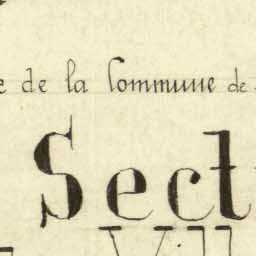 e de la Commune de
Sect
Vill